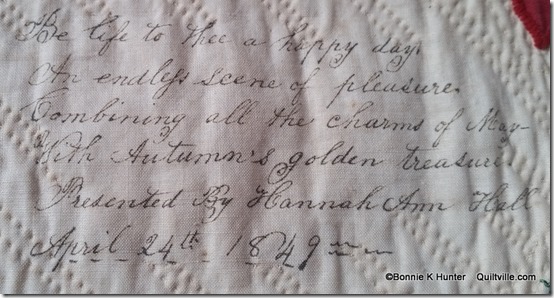 Be life to thee a happy day,
An endless scene of pleasure.
Combining all the charms of May-
With Autumn's golden treasure.
Presented By Hannah Ann Hall
April 24th 1849
©Bonnie K Hunter Quiltville.com